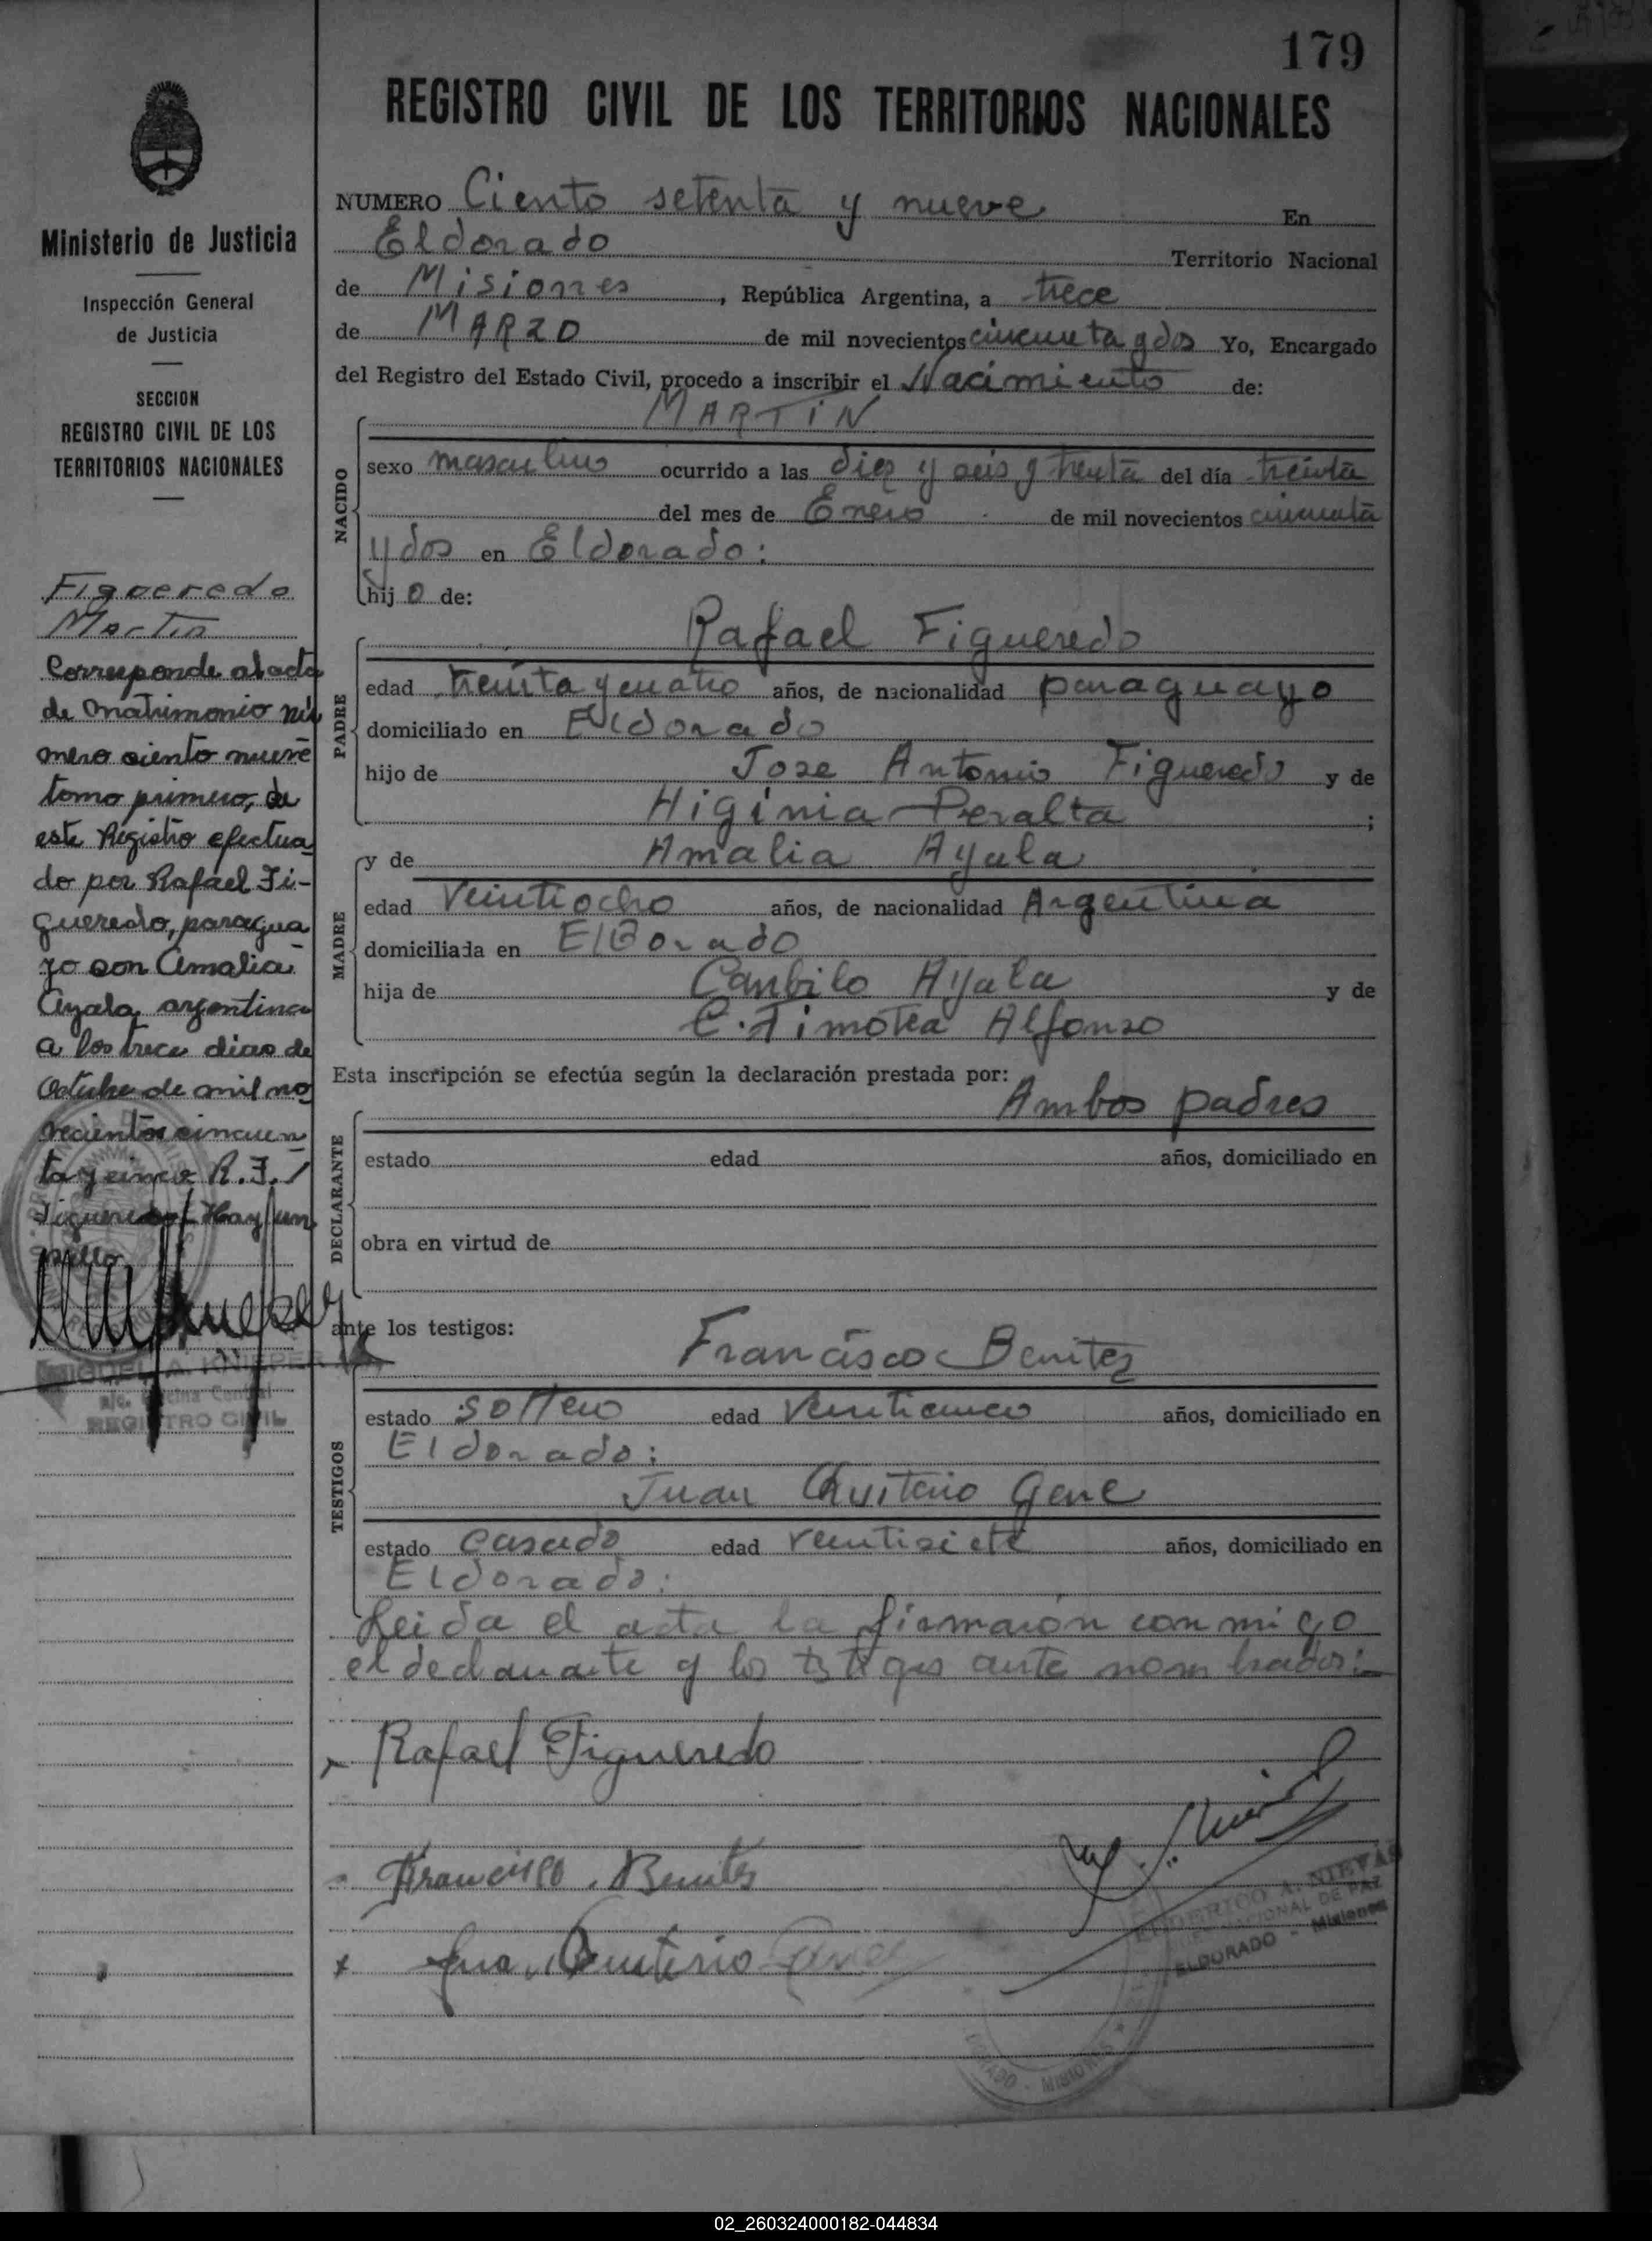 179
REGISTRO CIVIL DE LOS TERRITORIOS NACIONALES
Ministerio de Justicia
Inspección General
de Justicia
SECCION
REGISTRO CIVIL DE LOS
TERRITORIOS NACIONALES
Figueredo
Martin
Corresponde al acta
de Matrimonio nú
mero ciento nueve
tomo primero, de
este Registro efectua
do por Rafael Fi-
gueredo, paragua
yo con Amalia
Ayala, argentina
a los trece dias de
Octubre de mil no
vecientos cincuen
ta y cinco R. F./
Figueredo/ Hay un
sello
MIGUEL A. KNIEPER
a/c. Oficina Central
REGISTRO CIVIL
NUMERO Ciento setenta y nueve En
Eldorado Territorio Nacional
de Misiones, República Argentina, a trece
de MARZO de mil novecientos cincuenta y dos Yo, Encargado
del Registro del Estado Civil, procedo a inscribir el Nacimiento de:
MARTIN
NACIDO
sexo masculino ocurrido a las diez y seis y treinta del día treinta
del mes de Enero de mil novecientos cincuenta
y dos en Eldorado:
hijo de:
Rafael Figueredo
PADRE
edad treinta y cuatro años, de nacionalidad paraguayo
domiciliado en Eldorado
hijo de Jose Antonio Figueredo y de
Higinia Peralta ;
y de Amalia Ayala
MADRE
edad Veintiocho años, de nacionalidad Argentina
domiciliada en ElDorado
hija de Ayala y de
C. Timotea Alfonzo
Esta inscripción se efectúa según la declaración prestada por:
Ambos padres
DECLARANTE
estado edad años, domiciliado en
obra en virtud de
ante los testigos:
Francisco Benitez
TESTIGOS
estado soltero edad Veinticinco años, domiciliado en
Eldorado:
Juan Quiterio Gene
estado casado edad veintisiete años, domiciliado en
Eldorado:
Leida el acta la firmarón conmigo
el declarante y los testigos ante nombrados:
Rafael Figueredo
Francisco Benites
Quiterio
FEDERICO A. NIEVAS
NACIONAL DE PAZ
ELDORADO - Misiones
MISIONES
02_260324000182-044834